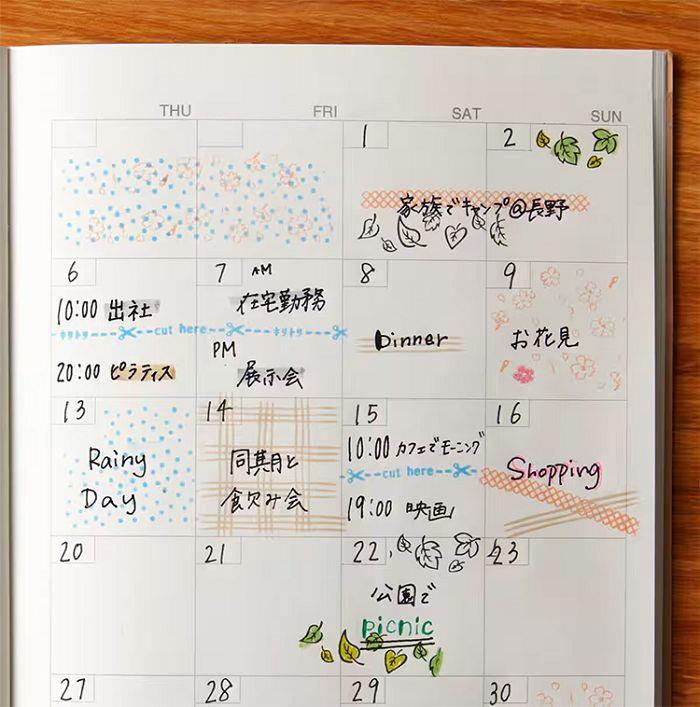 THU FRI SAT SUN
1 2
家族でキャンプ@長野
6 7 AM 8 9
10:00 出社
在宅勤務
キリトリ cut here キリトリ
Dinner
お花見
PM
20:00 ピラティス
展示会
13 14 15 16
10:00 カフェでモーニング
Rainy
Day
同期と
飲み会
cut here
19:00 映画
Shopping
20 21 22 23
公園で
picnic
27 28 29 30